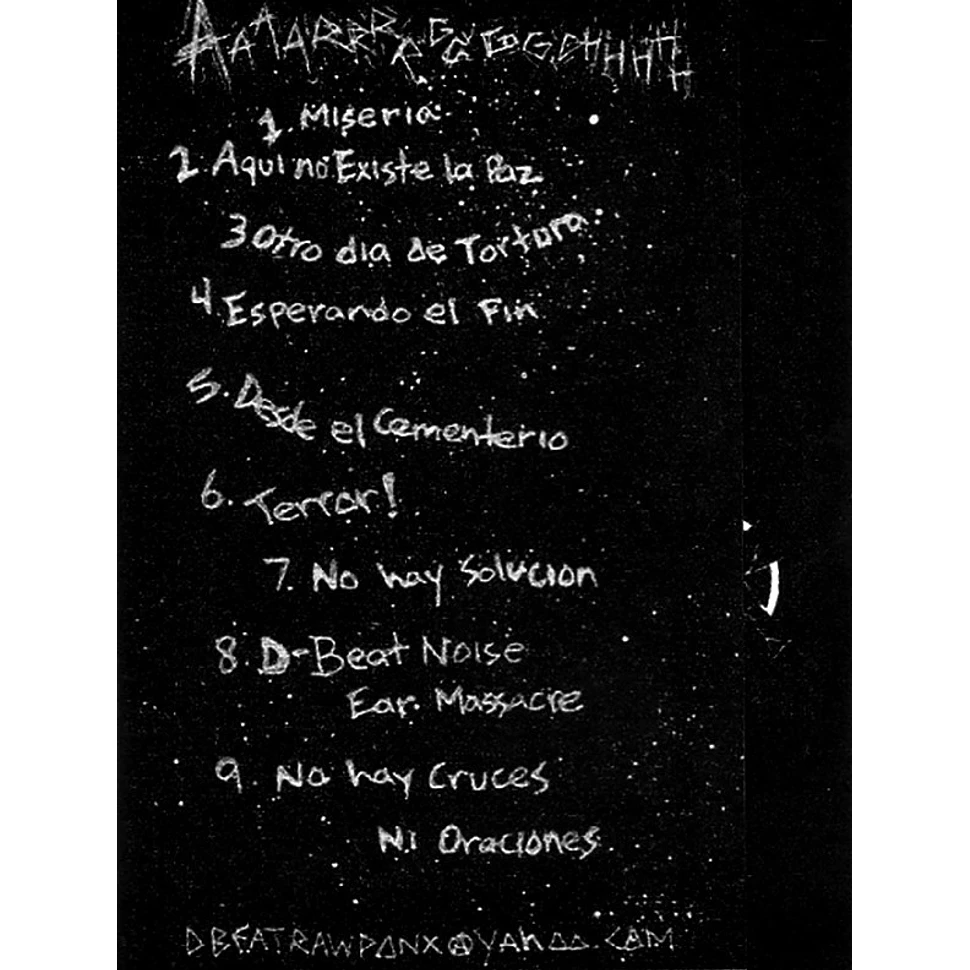 AAAARRRRGGGGGHHHHH
1. Miseria
2. Aqui no Existe la Paz
3 Otro dia de Tortura
4. Esperando el Fin
5. Desde el Cementerio
6. Terror!
7. No hay Solucion
8. D-Beat Noise
Ear Massacre
9. No hay Cruces
Ni Oraciones
DBEATRAWPANX@YAHOO.COM